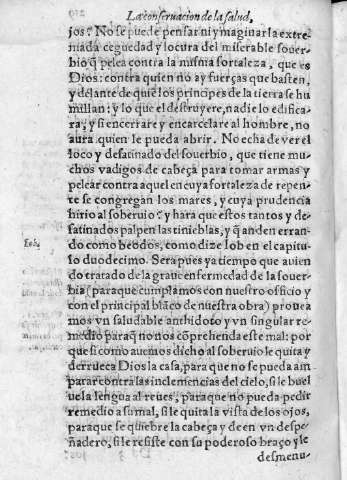 La conseruacion de la salud,
jos? No se puede pensar ni ymaginar la extre
mada ceguedad y locura del miserable souer-
bio q̃ pelea contra la misma fortaleza, que es
Dios: contra quien no ay fuerças que basten,
y delante de quiẽ los principes de la tierra se hu
millan: y lo que el destruyere, nadie lo edifica-
ra, y si encerrare y encarcelare al hombre, no
aura quien le pueda abrir. No echa de ver el
loco y desatinado del souerbio, que tiene mu-
chos vadigos de cabeça para tomar armas y
pelear contra aquel en cuya fortaleza de repen-
te se congregan los mares, y cuya prudencia
hirio al soberuio? y hara que estos tantos y de-
satinados palpen las tinieblas, y q̃ anden erran-
do como beodos, como dize Iob en el capitu
Iob.
lo duodecimo. Sera pues ya tiempo que auien
do tratado de la graue enfermedad de la souer-
bia (para que cumplamos con nuestro officio y
con el principal blãco de nuestra obra) prouea
mos vn saludable anthidoto y vn singular re-
medio para q̃ no nos cõprehenda este mal: por
que si como auemos dicho al soberuio le quita y
derrueca Dios la casa, para que no se pueda am
parar contra las inclemencias del cielo, si le buel
ue la lengua al reues, para que no pueda pedir
remedio a su mal, si le quita la vista de los ojos,
para que se quiebre la cabeça y de en vn despe-
ñadero, si le resiste con su poderoso braço y le
desmenu-